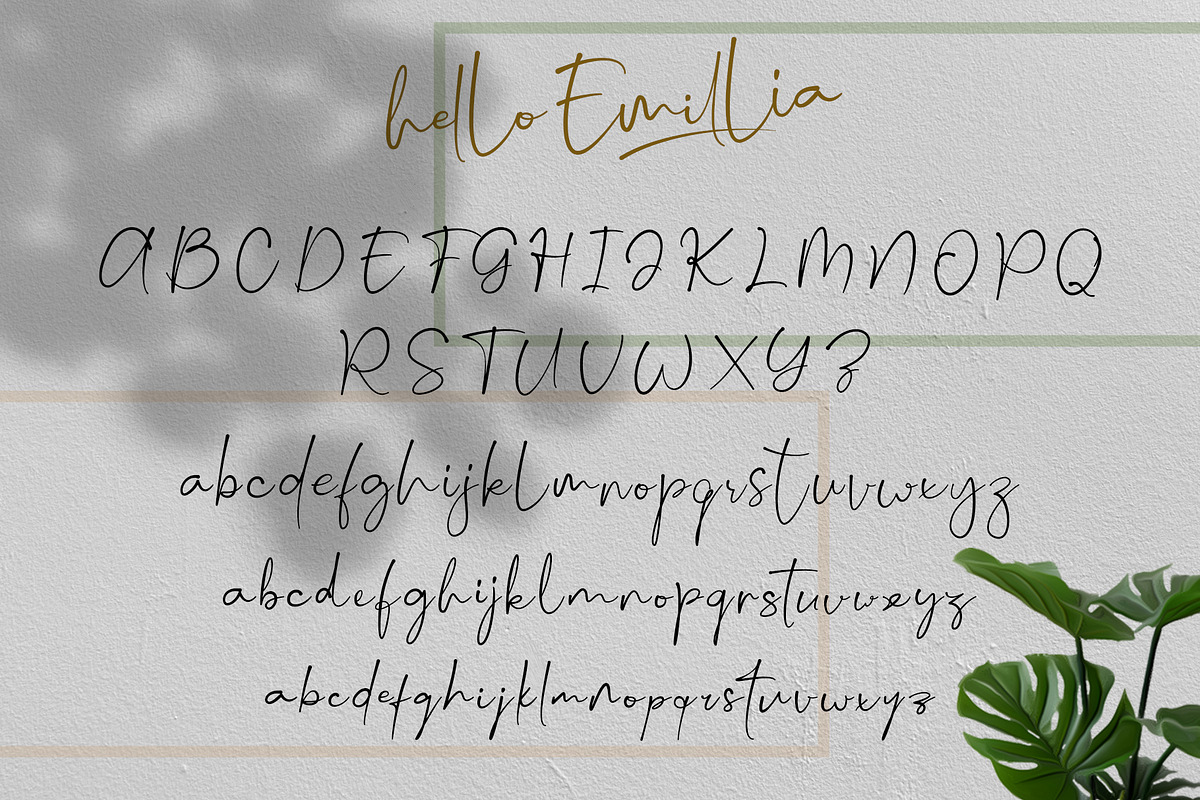 hello Emillia
ABCDEFGHIJKLMNOPQ
RSTUVWXYZ
abcdefghijklmnopqrstuvwxyz
abcdefghijklmnopqrstuvwxyz
abcdefghijklmnopqrstuvwxyz